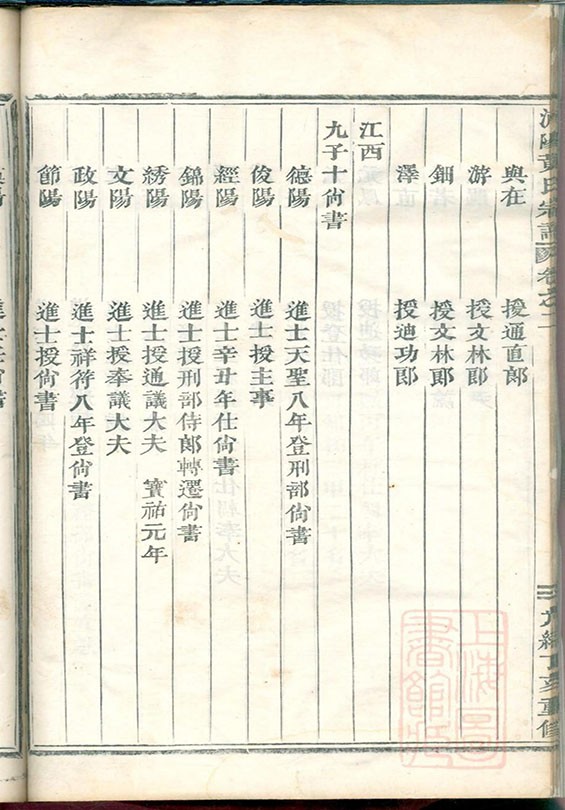 黃氏宗譜 卷之二
與在 授通直郎
游 授文林郎
鈿 授文林郎
澤 授迪功郎
江西
九子十尙書
德陽 進士天聖八年登刑部尙書
俊陽 進士授主事
經陽 進士辛丑年仕尙書
錦陽 進士授刑部侍郎轉遷尙書
綉陽 進士授通議大夫 寶祐元年
文陽 進士授奉議大夫
政陽 進士祥符八年登尙書
節陽 進士授尙書
上海圖書館藏